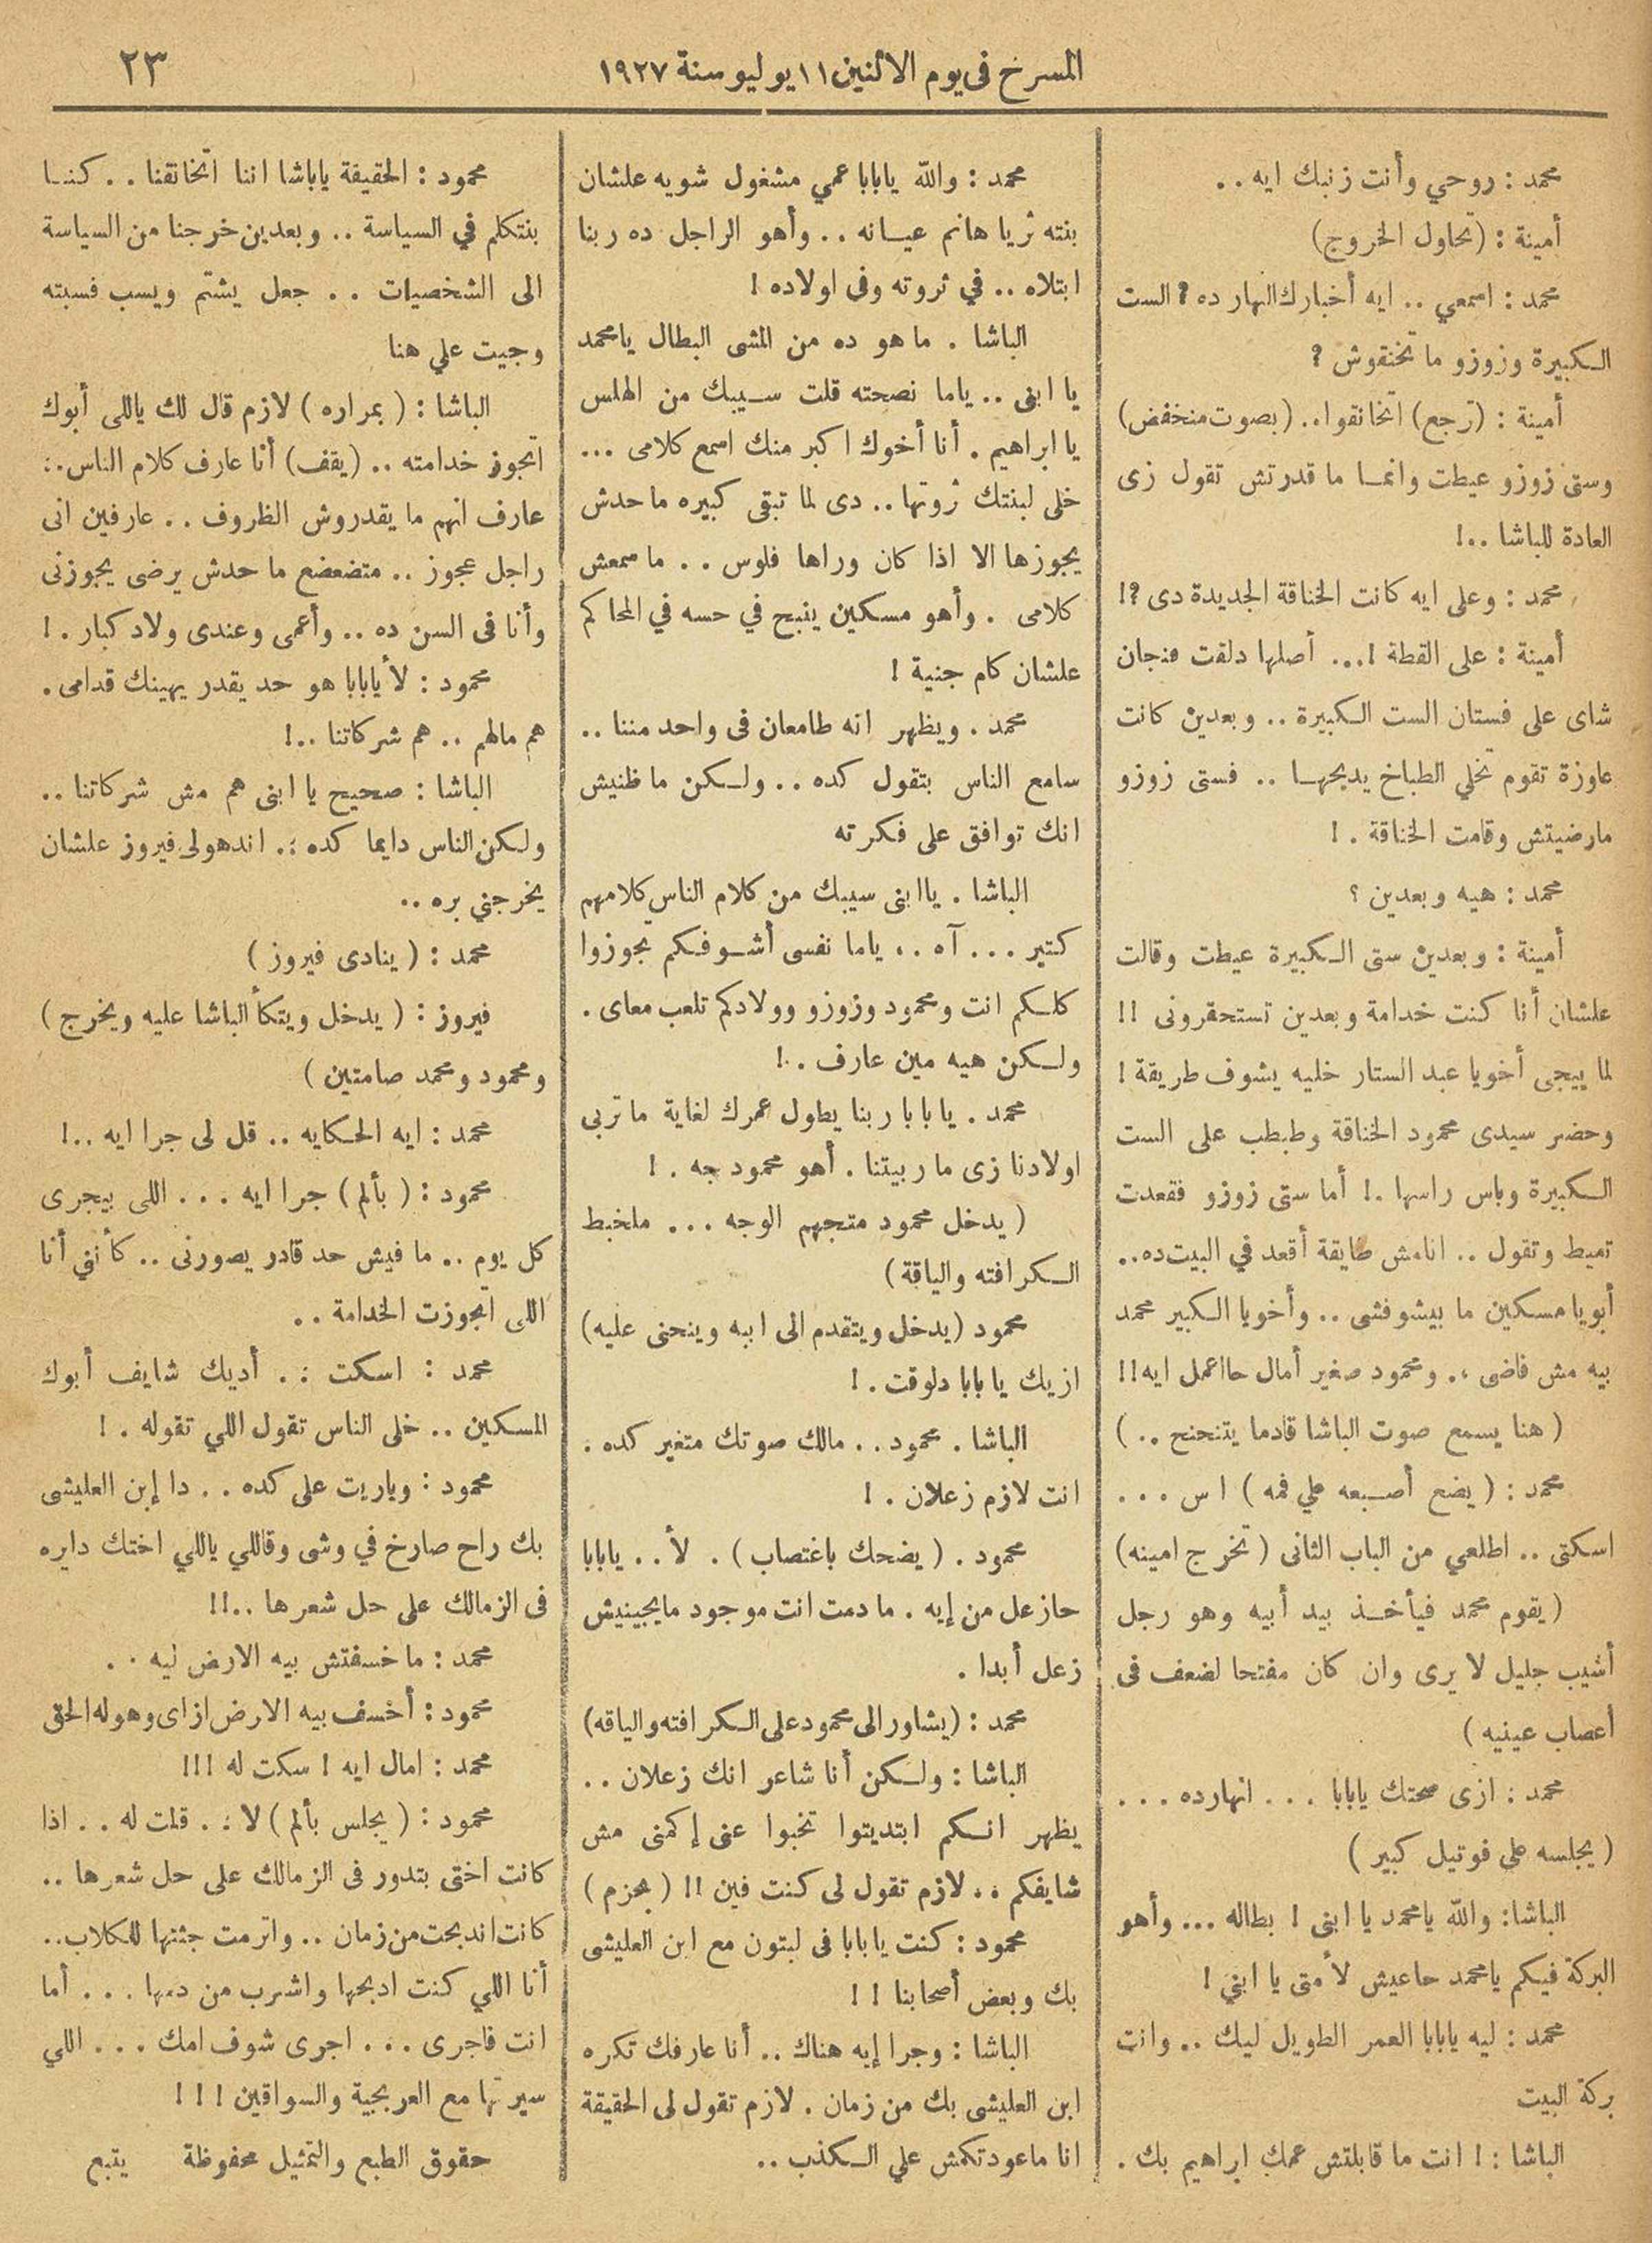 المسرح فى يوم الاثنين ١١ يوليو سنة ١٩٢٧
٢٣
محمد : روحي وأنت زنبك ايه ..
أمينة : (تحاول الخروج)
محمد : اسمعي .. ايه أخبارك النهار ده ? الست
الكبيرة وزوزو ما تخنقوش ?
أمينة : (ترجع) اتخانقوا .. (بصوت منخفض)
وستى زوزو عيطت وانما ما قدرتش تقول زى
العادة للباشا ..!
محمد : وعلى ايه كانت الخناقة الجديدة دى ?!
أمينة : على القطة !... أصلها دلقت فنجان
شاى على فستان الست الكبيرة .. وبعدين كانت
عاوزة تقوم تخلي الطباخ يدبحها .. فستى زوزو
مارضيتش وقامت الخناقة . !
محمد : هيه وبعدين ؟
أمينة : وبعدين ستى الكبيرة عيطت وقالت
علشان أنا كنت خدامة وبعدين تستحقرونى !!
لما ييجى أخويا عبد الستار خليه يشوف طريقة !
وحضر سيدى محمود الخناقة وطبطب على الست
الكبيرة وباس راسها .! أما ستى زوزو فقعدت
تعيط وتقول .. انامش طايقة أقعد في البيت ده ..
أبويا مسكين ما بيشوفشى .. وأخويا الكبير محمد
بيه مش فاضى .. ومحمود صغير أمال حااعمل ايه !!
( هنا يسمع صوت الباشا قادما يتنحنح .. )
محمد : ( يضع أصبعه علي فمه ) اس ...
اسكتى .. اطلعي من الباب الثانى ( تخرج امينه)
( يقوم محمد فيأخذ بيد أبيه وهو رجل
أشيب جليل لا يرى وان كان مفتحا لضعف فى
أعصاب عينيه )
محمد : ازى صحتك يابابا ... انهارده ...
( يجلسه علي فوتيل كبير )
الباشا : والله يا محمد يا ابنى ! بطاله ... وأهو
البركة فيكم يا محمد حاعيش لأمتى يا ابني !
محمد : ليه يابابا العمر الطويل ليك .. وانت
بركة البيت
الباشا : ! انت ما قابلتش عمك ابراهيم بك .
محمد : والله يابابا عمي مشغول شويه علشان
بنته ثريا هانم عيانه .. وأهو الراجل ده ربنا
ابتلاه .. في ثروته وفى اولاده !
الباشا . ما هو ده من المشى البطال يا محمد
يا ابنى .. ياما نصحته قلت سيبك من الهلس
يا ابراهيم . أنا أخوك اكبر منك اسمع كلامى ...
خلى لبنتك ثروتها .. دى لما تبقى كبيره ماحدش
يجوزها الا اذا كان وراها فلوس .. ما سمعش
كلامى . وأهو مسكين ينبح في حسه في المحاكم
علشان كام جنية !
محمد . ويظهر انه طامعان فى واحد مننا ..
سامع الناس بتقول كده .. ولكن ما ظنيش
انك توافق على فكرته
الباشا . يا ابنى سيبك من كلام الناس كلامهم
كتير ... آه .. ياما نفسى أشوفكم تجوزوا
كلكم انت ومحمود وزوزو وولادكم تلعب معاى .
ولكن هيه مين عارف . !
محمد . يا بابا ربنا يطول عمرك لغاية ما تربى
اولادنا زى ما ربيتنا . أهو محمود جه . !
( يدخل محمود متجهم الوجه ... ملخبط
الكرافته والياقة )
محمود (يدخل ويتقدم الى ابيه وينحنى عليه)
ازيك يا بابا دلوقت . !
الباشا . محمود .. مالك صوتك متغير كده .
انت لازم زعلان . !
محمود . ( يضحك باغتصاب ) . لأ .. يابابا
حازعل من إيه . ما دمت انت موجود مايجينيش
زعل أبدا .
محمد : (يشاور الى محمود على الكرافته والياقه)
الباشا : ولكن أنا شاعر انك زعلان ..
يظهر انكم ابتديتوا تخبوا عنى إكمنى مش
شايفكم .. لازم تقول لى كنت فين !! ( بحزم )
محمود : كنت يابابا فى لبتون مع ابن العليشى
بك وبعض أصحابنا ! !
الباشا : وجرا إيه هناك .. أنا عارفك تكره
ابن العليشى بك من زمان . لازم تقول لى الحقيقة
انا ماعودتكمش علي الكذب ..
محمود : الحقيقة ياباشا اننا اتخانقنا .. كنا
بنتكلم في السياسة .. وبعدين خرجنا من السياسة
الى الشخصيات .. جعل يشتم ويسب فسبته
وجيت علي هنا
الباشا : ( بمراره ) لازم قال لك ياللى أبوك
اتجوز خدامته .. (يقف) أنا عارف كلام الناس ..
عارف انهم ما يقدروش الظروف .. عارفين انى
راجل عجوز .. متضعضع ما حدش يرضى يجوزنى
وأنا فى السن ده .. وأعمى وعندى ولاد كبار . !
محمود : لأ يابابا هو حد يقدر يهينك قدامى .
هم مالهم .. هم شركاتنا ..!
الباشا : صحيح يا ابنى هم مش شركاتنا ..
ولكن الناس دايما كده .. اندهولى فيروز علشان
يخرجني بره ..
محمد : ( ينادى فيروز )
فيروز : ( يدخل ويتكأ الباشا عليه ويخرج )
ومحمود ومحمد صامتين )
محمد : ايه الحكايه .. قل لى جرا ايه ..!
محمود : ( بألم ) جرا ايه ... اللى بيجرى
كل يوم .. ما فيش حد قادر يصورنى .. كأنني أنا
اللى اتجوزت الخدامة ..
محمد : اسكت .. أديك شايف أبوك
المسكين .. خلى الناس تقول اللي تقوله . !
محمود : وياريت على كده .. دا إبن العليشى
بك راح صارخ في وشى وقاللي ياللي اختك دايره
فى الزمالك على حل شعرها ..!!
محمد : ما خسفتش بيه الارض ليه ..
محمود : أخسف بيه الارض ازاى وهوله الحق
محمد : امال ايه ! سكت له !!!
محمود : ( يجلس بألم ) لا .. قلت له .. اذا
كانت اختى بتدور فى الزمالك على حل شعرها ..
كانت اندبحت من زمان .. واترمت جثتها للكلاب ..
أنا اللي كنت ادبحها واشرب من دمها ... أما
انت فاجرى ... اجرى شوف امك ... اللي
سيرتها مع العربجية والسواقين ! ! !
حقوق الطبع والتمثيل محفوظة يتبع